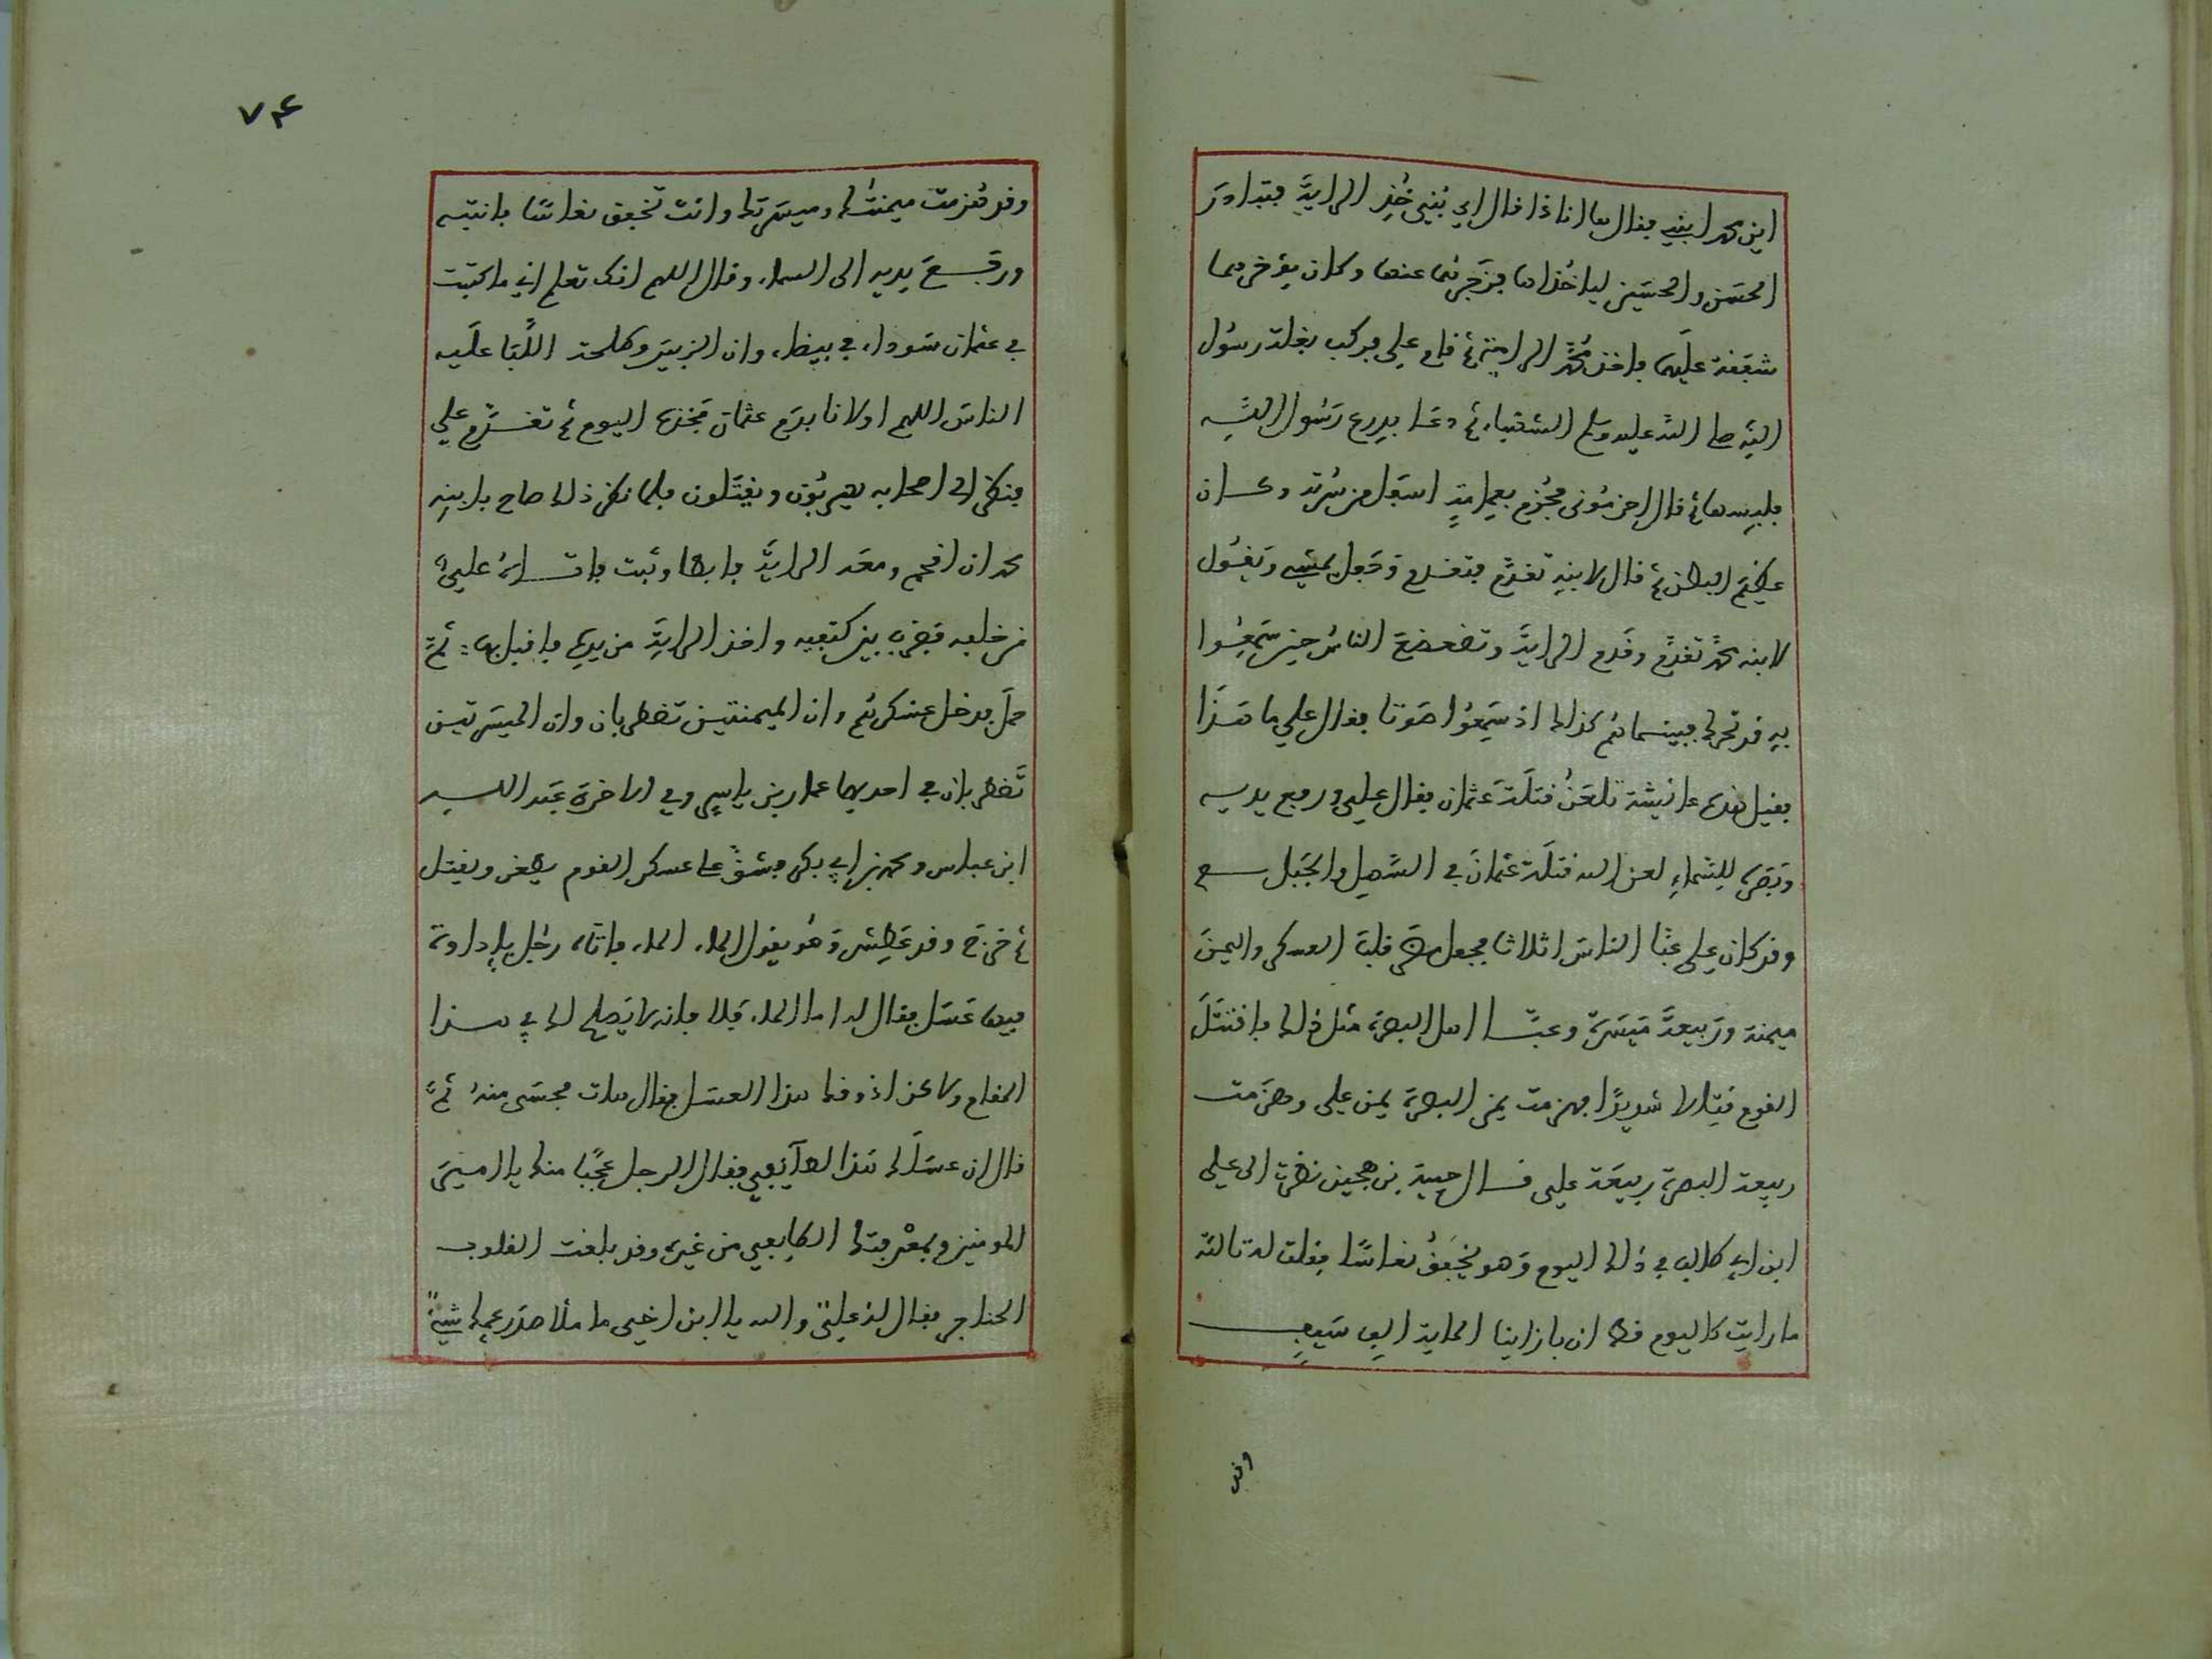 اين محمد ابني فقال ها انا ذا فقال اي بني خذ الراية فتبادر
الحسن والحسين لياخذاها فزجرهما عنها وكان يؤخرهما
شفقة عليهما فاخذ محمد الراية ثم قام علي فركب بغلة رسول
الله صلى الله عليه وسلم الشهباء ثم دعا بدرع رسول الله
فلبسها ثم قال احزموني فحزم بعمامة اسفل من سرته وكان
عظيم البطن ثم قال لابنه تقدم فتقدم وجعل يمشي ويقول
لابنه محمد تقدم وقدم الراية وتضعضع الناس حين سمعوا
به قد تحرك فبينما هم كذلك اذ سمعوا صوتا فقال علي ما هذا
فقيل هذه عائشة تلعن قتلة عثمان فقال علي ورفع يديه
وبصره للسماء لعن الله قتلة عثمان في السهل والجبل
وقد كان علي عبا الناس اثلاثا فجعل مضر قلب العسكر واليمن
ميمنة وربيعة ميسرة وعبا اهل البصرة مثل ذلك فاقتتل
القوم قتالا شديدا فهزمت يمن البصرة يمن علي وهزمت
ربيعة البصرة ربيعة علي قال حبية بن جهين نظرت الى علي
ابن ابي طالب في ذلك اليوم وهو يخفق نعاسا فقلت له تالله
ما رايت كاليوم قط ان بازاينا لماية الف سيف
وقد
٧٤
وقد هزمت ميمنتك وميسرتك وانت تخفق نعاسا فانتبه
ورفع يديه الى السماء وقال اللهم انك تعلم اني ما كتبت
في عثمان سوداء في بيضاء وان الزبير وطلحة البا عليه
الناس اللهم اولانا بدم عثمان فخذه اليوم ثم تقدم علي
فنظر الى اصحابه يهزمون ويقتلون فلما نظر ذلك صاح بابنه
محمد ان اقحم ومعه الراية فابطا وثبت فاتاه علي
من خلفه فضرب بين كتفيه واخذ الراية من يده فاقبل بها ثم
حمل فدخل عسكرهم وان الميمنتين تضطربان وان الميسرتين
تضطربان في احديهما عمار بن ياسر وفي الاخرة عبد الله
ابن عباس ومحمد بن ابي بكر فشق علي عسكر القوم يطعن ويقتل
ثم خرج وقد عطش وهو يقول الماء الماء فاتاه رجل باداوة
فيها عسل فقال له اما الماء فلا فانه لا يصلح لك في هذا
المقام ولاكن اذوقك هذا العسل فقال هات فحسى منه ثم
قال ان عسلك هذا لطائفي فقال الرجل عجبا منك يا امير
المومنين لمعرفتك الطايفي من غيره وقد بلغت القلوب
الحناجر فقال له علي والله يا ابن اخي ما ملا صدر عمك شيء